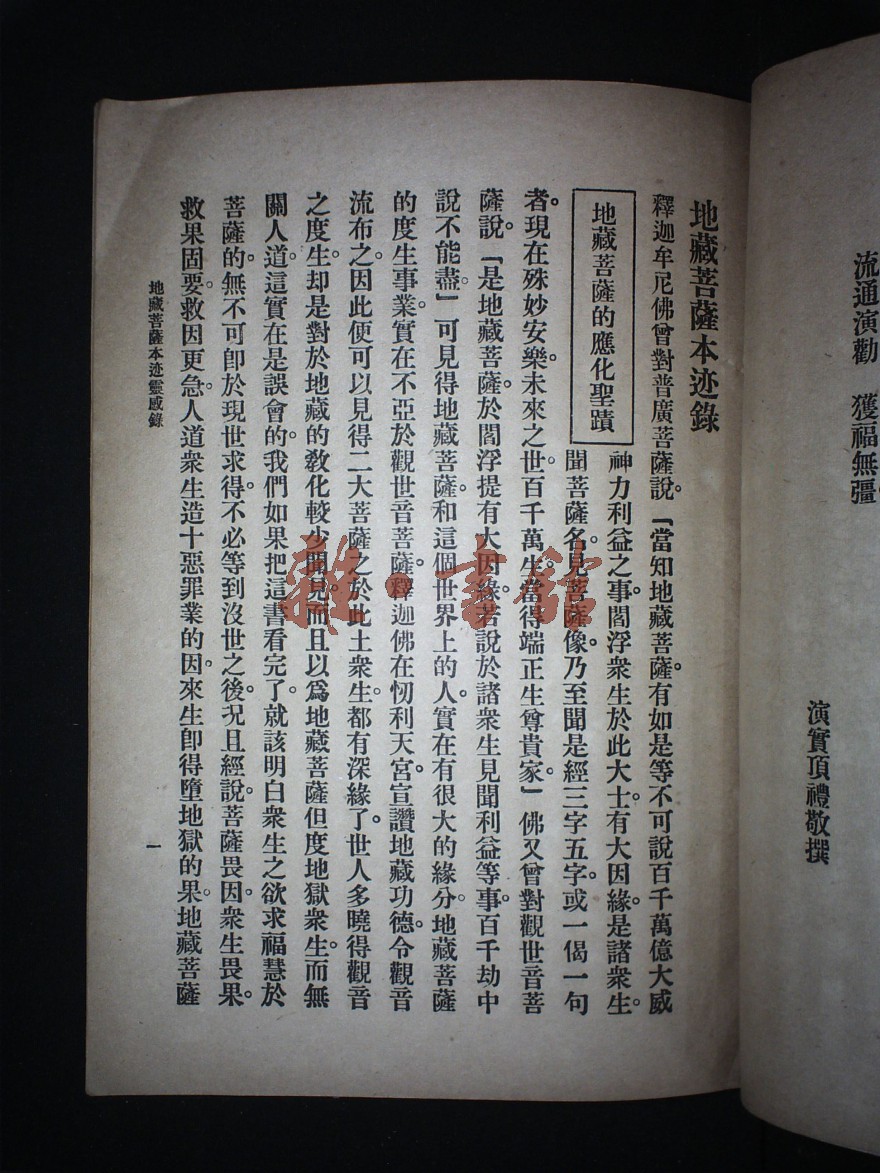 流通演勸　獲福無疆
演實頂禮敬撰
地藏菩薩本迹錄
釋迦牟尼佛曾對普廣菩薩說。「當知地藏菩薩。有如是等不可說百千萬億大威
地藏菩薩的應化聖蹟
神力利益之事。閻浮衆生於此大士。有大因緣。是諸衆生。
聞菩薩名。見菩薩像。乃至聞是經三字五字。或一偈一句
者。現在殊妙安樂。未來之世。百千萬生。當得端正生尊貴家。」佛又曾對觀世音菩
薩說。「是地藏菩薩。於閻浮提有大因緣。若說於諸衆生見聞利益等事。百千劫中
說不能盡。」可見得地藏菩薩。和這個世界上的人。實在有很大的緣分。地藏菩薩
的度生事業。實在不亞於觀世音菩薩。釋迦佛在忉利天宮。宣讚地藏功德。令觀音
流布之。因此便可以見得二大菩薩之於此土衆生。都有深緣了。世人多曉得觀音
之度生。却是對於地藏的敎化較少聞見。而且以爲地藏菩薩但度地獄衆生。而無
關人道。這實在是誤會的。我們如果把這書看完了。就該明白衆生之欲求福慧於
菩薩的。無不可卽於現世求得。不必等到沒世之後。况且經說。菩薩畏因。衆生畏果。
救果固要。救因更急。人道衆生造十惡罪業的因。來生卽得墮地獄的果。地藏菩薩
地藏菩薩本迹靈感錄
一
雜·書館